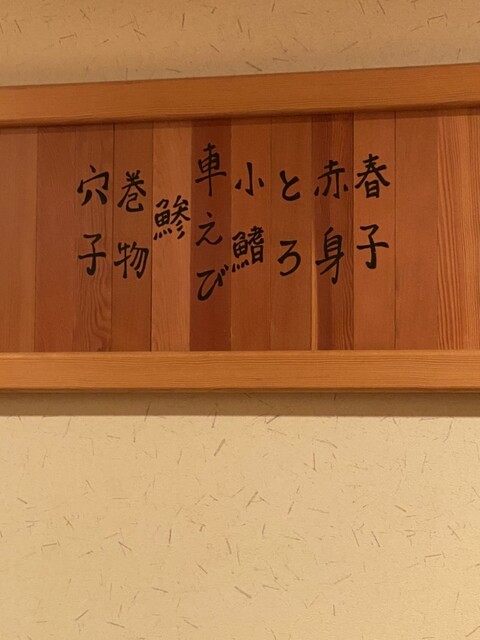 春子
赤身
とろ
小鰭
車えび
鯵
巻物
穴子